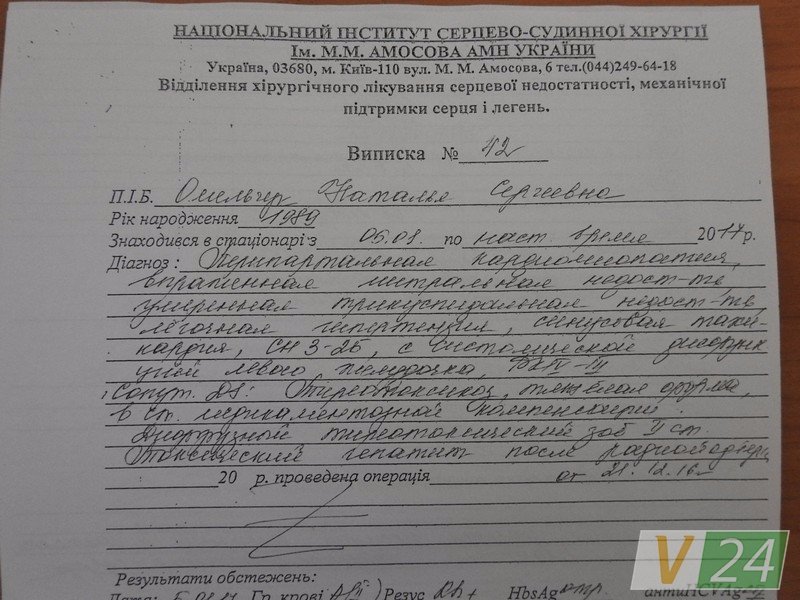 НАЦІОНАЛЬНИЙ ІНСТИТУТ СЕРЦЕВО-СУДИННОЇ ХІРУРГІЇ
Ім. М.М. АМОСОВА АМН УКРАЇНИ
Україна, 03680, м. Київ-110 вул. М. М. Амосова, 6 тел.(044)249-64-18
Відділення хірургічного лікування серцевої недостатності, механічної
підтримки серця і легень.
Виписка № 42
П.І.Б. Наталья Сергеевна
Рік народження 1989
Знаходився в стаціонарі з 05.01. по наст время 2017р.
Діагноз : Перипартальная кардиомиопатия,
выраженная митральная недост-ть
умеренная трикуспидальная недост-ть,
легочная гипертензия, синусовая тахи-
кардия, СН 3-2Б, с систолической дисфунк
цией левого желудочка,
Сопут. DS: Тиреотоксикоз, тяжелая форма,
в ст. медикаментозной компенсации.
Диффузный тиреотоксический зоб II ст.
Токсический гепатит после
20 р. проведена операція от 21.12.16г
Результати обстежень:
Дата: Гр. крові Резус HbsAg антиHCVAg
V24